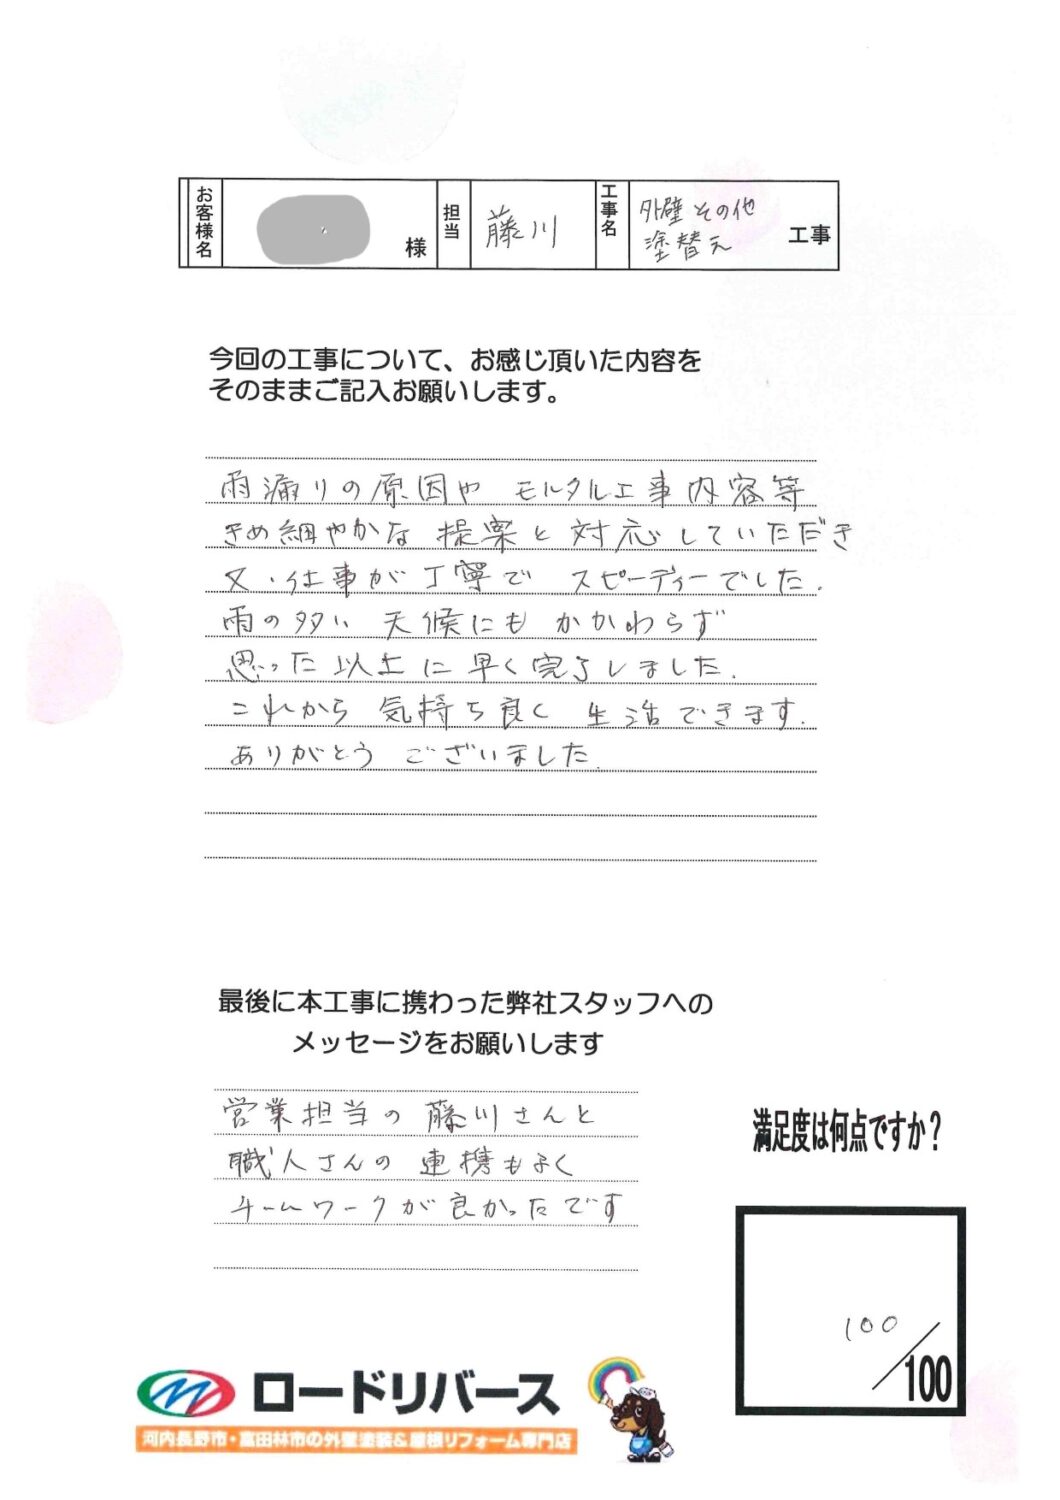 お客様名 様 担当 藤川 工事名 外壁その他
塗替え 工事
今回の工事について、お感じ頂いた内容を
そのままご記入お願いします。
雨漏りの原因や モルタル工事内容等
きめ細やかな 提案と対応していただき
又、仕事が丁寧で スピーディーでした.
雨の多い 天候にもかかわらず
思った以上に早く完了しました.
これから気持ち良く 生活できます.
ありがとう ございました.
最後に本工事に携わった弊社スタッフへの
メッセージをお願いします
営業担当の 藤川さんと
職人さんの 連携もよく
チームワークが良かったです
満足度は何点ですか?
100
/100
ロードリバース
河内長野市・富田林市の外壁塗装&屋根リフォーム専門店